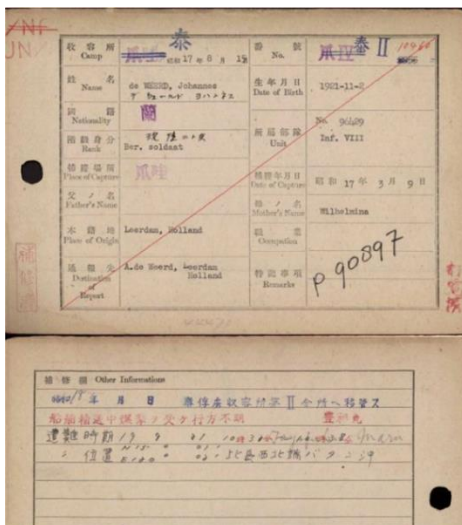 JN
收容所 Camp 泰 爪哇 昭和 17 年 8 月 15
番號 No. 爪哇 泰 II 10466
姓名 Name de WEERD, Johannes
生年月日 Date of Birth 1921-11-2
國籍 Nationality 蘭
階級身分 Rank Ber. soldaat
所屬部隊 Unit No. 96429 Inf. VIII
捕獲場所 Place of Capture 爪哇
捕獲年月日 Date of Capture 昭和 17年 3月 9日
父ノ名 Father's Name
母ノ名 Mother's Name Wilhelmina
本籍地 Place of Origin Leerdam, Holland
職業 Occupation
通報先 Destination of Report A.de Weerd, Leerdam Holland
特記事項 Remarks P 90897
補修濟
補修欄 Other Informations
昭和18年 月 日 泰俘虜收容所第 II 分所ヘ移管ス
船舶輸送中爆撃ヲ受ケ行方不明 豊福丸
遭難時期 19 9 21
〃 位置